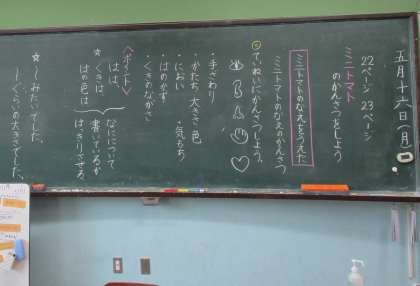 五月十六日(月)
22ページ 23ページ
ミニトマト
のかんさつをしよう
ミニトマトのなえをうえた
ミニトマトのなえのかんさつ
ていねいにかんさつしよう。
・手ざわり
・かたち 大きさ 色
・におい ・気もち
・はのかず
・くきのながさ
〈ポイント〉
★はは、
くきは、
はの色は
なにについて
書いているか
はっきりさせる。
☆〜みたいでした。
〜くらいの大きさでした。